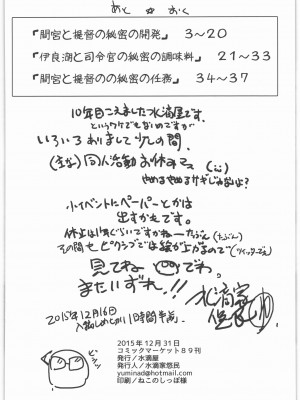 あとがおく
『間宮と提督の秘密の開発』 3～20
『伊良湖と司令官の秘密の調味料』 21～33
『間宮と提督のの秘密の任務』 34～37
10年目こえました水滴屋です。
というワケでもないのですが
いろいろありまして少しの間、
同人活動お休みです
やめるやめるサギじゃないよ?
小イベントにペーパーとかは
出すかもです。
休止は1年ぐらいですかねーたぶん(たぶん)
その間もピクシブでは絵が上がるので
見てね でわ。
またいずれ!!
2015年12月16日
入稿しめきり11時間半前。
水滴家
悠民
ビシッ
2015年12月31日
コミックマーケット89刊
発行/水滴屋
発行人/水滴家悠民
yuminad@hotmail.com
印刷/ねこのしっぽ様